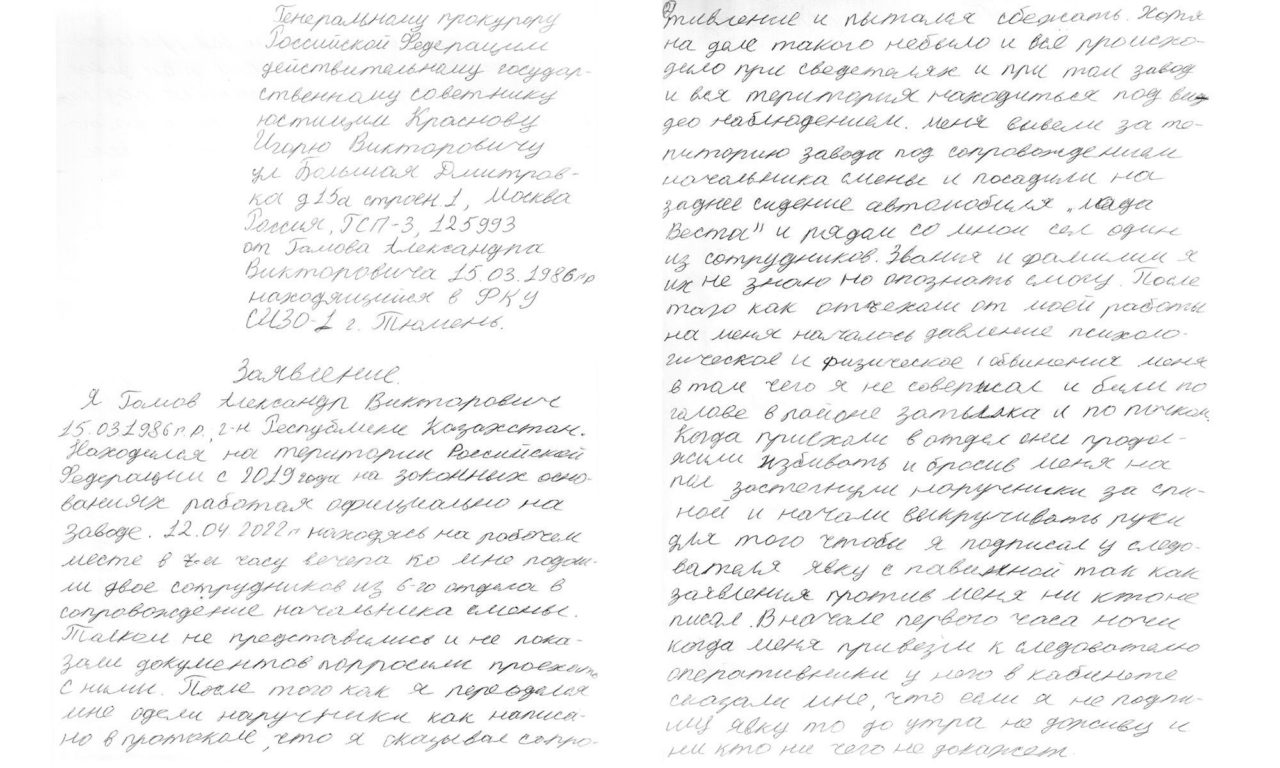 Генеральному прокурору
Российской Федерации
действительному государ-
ственному советнику
юстиции Краснову
Игорю Викторовичу
ул Большая Дмитров-
ка д 15а строен. 1, Москва
Россия, ГСП-3, 125993
от Гамова Александра
Викторовича 15.03.1986 г.р
находящийся в ФКУ
СИЗО-1 г. Тюмень.
Заявление.
Я Гамов Александр Викторович
15.03 1986 г.р., г-н Республики Казахстан.
Находился на територии Российской
Федерации с 2019 года на законных осно-
ваниях работая официально на
заводе. 12.04.2022 г находясь на рабочем
месте в 7-м часу вечера ко мне подош-
ли двое сотрудников из 6-го отдела в
сопровождение начальника смены.
Толком не представились и не пока-
зали документов попросили проехать
с ними. После того как я переоделся
мне одели наручники как написа-
но в протоколе, что я оказывал сопро-
2
тивление и пытался сбежать. Хотя
на деле такого небыло и всё происхо-
дило при сведетелях и при том завод
и вся територия находиться под ви-
део наблюдением. Меня вывели за те-
риторию завода под сопровождением
начальника смены и посадили на
заднее сидение автомобиля „Лада
Веста" и рядом со мной сел один
из сотрудников. Звания и фамилии я
их не знаю но опознать смогу. После
того как отъехали от моей работы
на меня началось давление психоло-
гическое и физическое, обвинения меня
в том чего я не совершал и били по
голове в районе затылка и по почкам.
Когда приехали в отдел они продол-
жили избивать и бросив меня на
пол застегнули наручники за спи-
ной и начали выкручивать руки
для того чтобы я подписал у следо-
вателя явку с повинной так как
заявления против меня ни кто не
писал. В начале первого часа ночи
когда меня привезли к следователю
оперативники у него в кабинете
сказали мне, что если я не подпи-
шу явку то до утра не доживу и
ни кто ни чего не докажет.